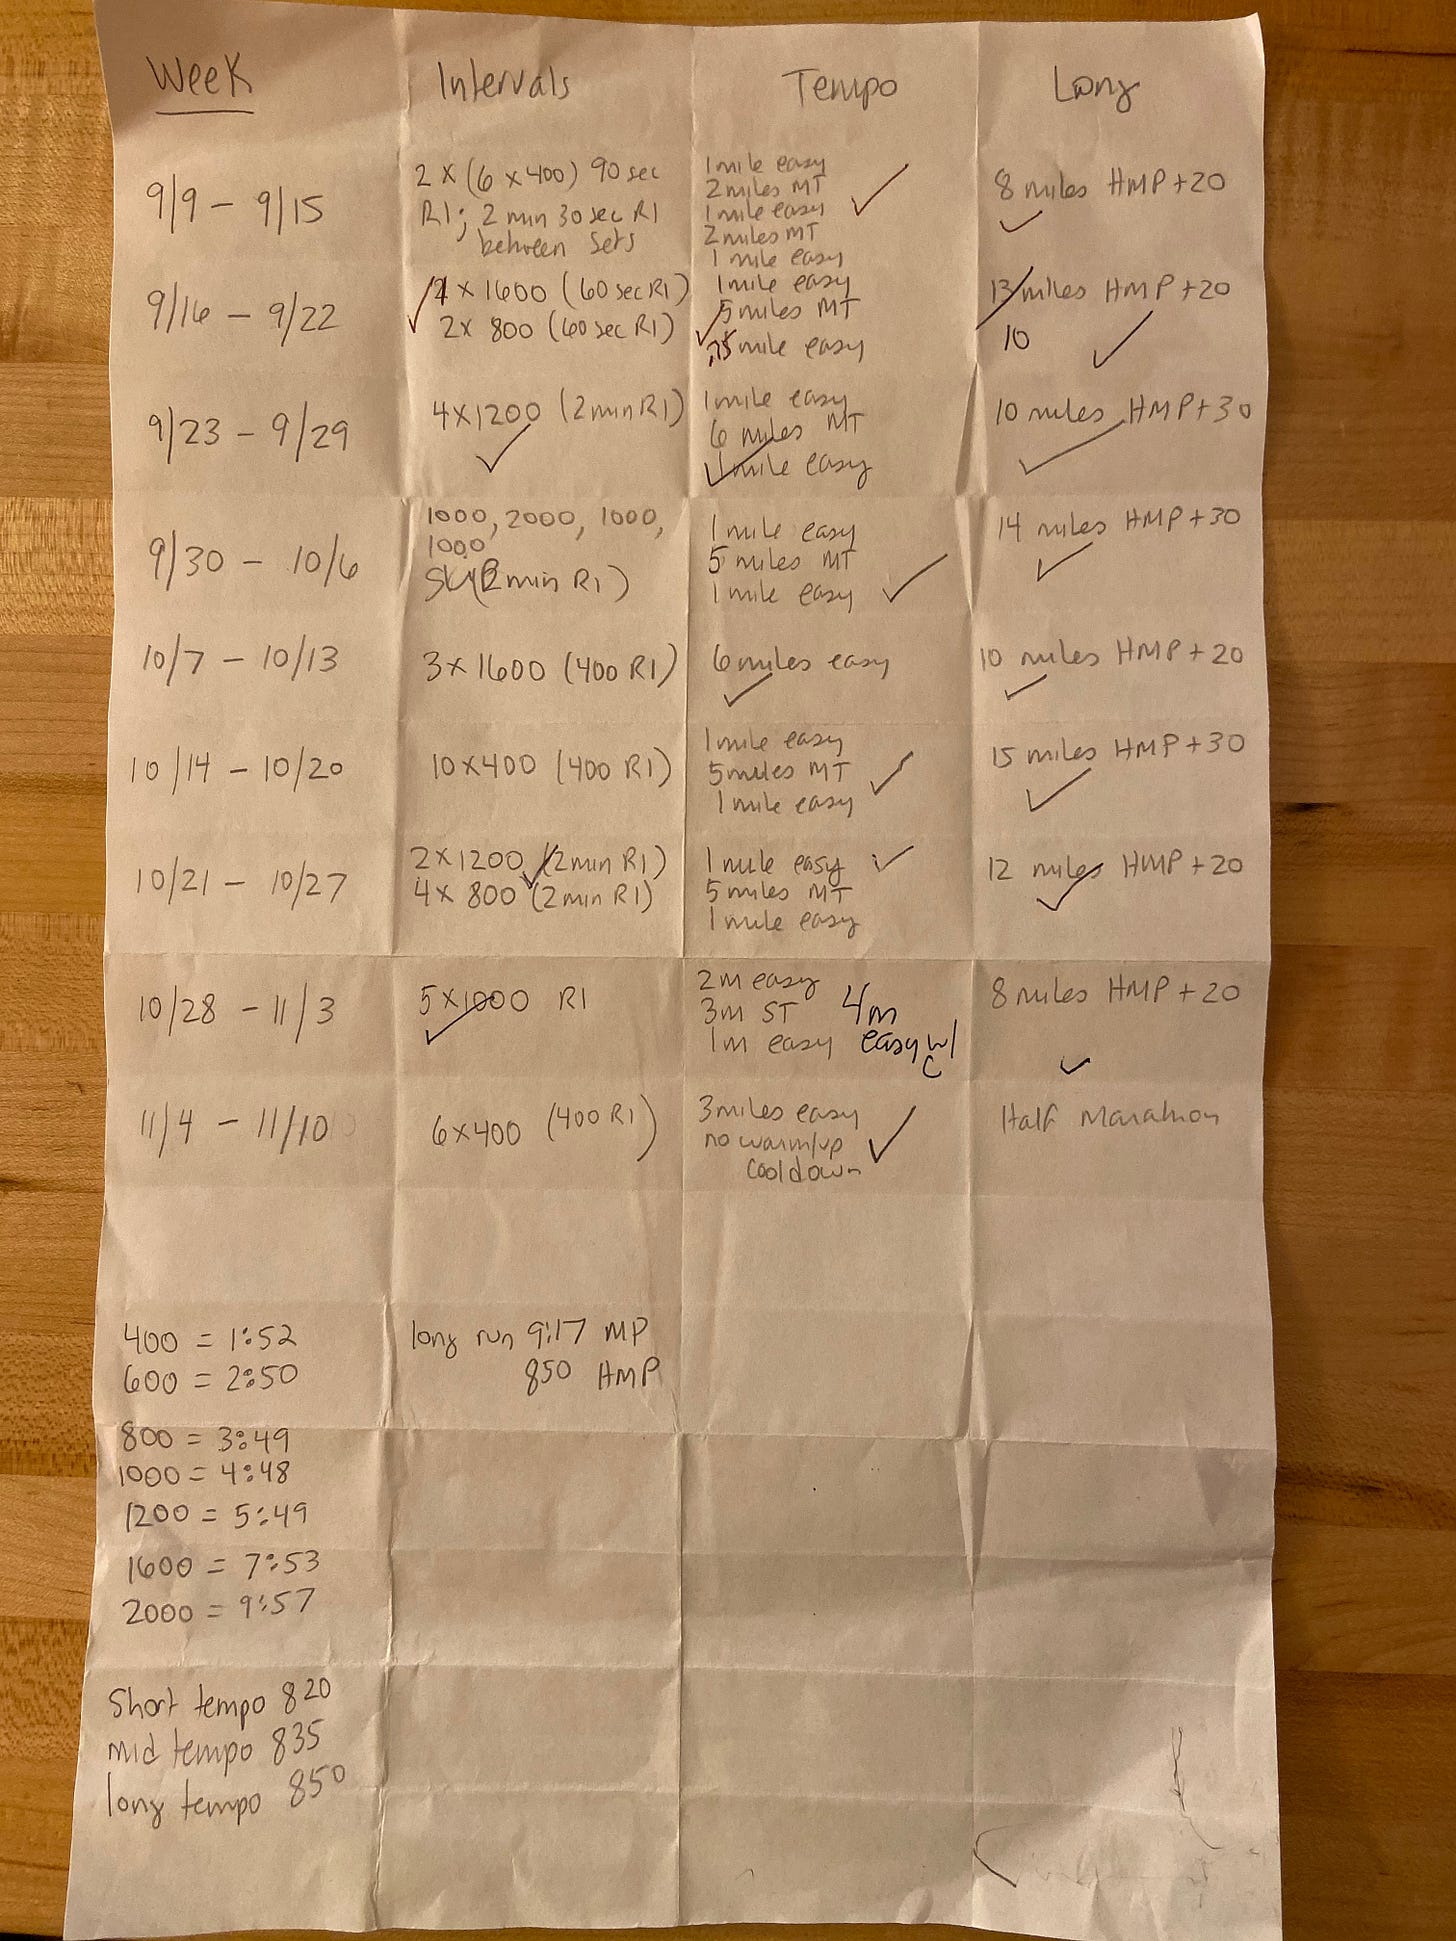 Week Intervals Tempo Long
9/9 - 9/15
2 x (6 x 400) 90 sec
RI; 2 min 30 sec RI
between sets
1 mile easy
2 miles MT
1 mile easy
2 miles MT
1 mile easy
8 miles HMP + 20
9/16 - 9/22
x 1600 (60 sec RI)
2 x 800 (60 sec RI)
1 mile easy
5 miles MT
.75 mile easy
13 miles HMP + 20
10
9/23 - 9/29
4 x 1200 (2 min RI)
1 mile easy
6 miles MT
1 mile easy
10 miles HMP + 30
9/30 - 10/6
1000, 2000, 1000,
1000
(2 min RI)
1 mile easy
5 miles MT
1 mile easy
14 miles HMP + 30
10/7 - 10/13
3 x 1600 (400 RI)
6 miles easy
10 miles HMP + 20
10/14 - 10/20
10 x 400 (400 RI)
1 mile easy
5 miles MT
1 mile easy
15 miles HMP + 30
10/21 - 10/27
2 x 1200 (2 min RI)
4 x 800 (2 min RI)
1 mile easy
5 miles MT
1 mile easy
12 miles HMP + 20
10/28 - 11/3
5 x 1000 RI
2m easy
3m ST
1m easy
4m
easy w/
C
8 miles HMP + 20
11/4 - 11/10
6 x 400 (400 RI)
3 miles easy
no warm/up
cooldown
Half Marathon
400 = 1:52
600 = 2:50
800 = 3:49
1000 = 4:48
1200 = 5:49
1600 = 7:53
2000 = 9:57
long run 9:17 MP
850 HMP
Short tempo 820
mid tempo 835
long tempo 850